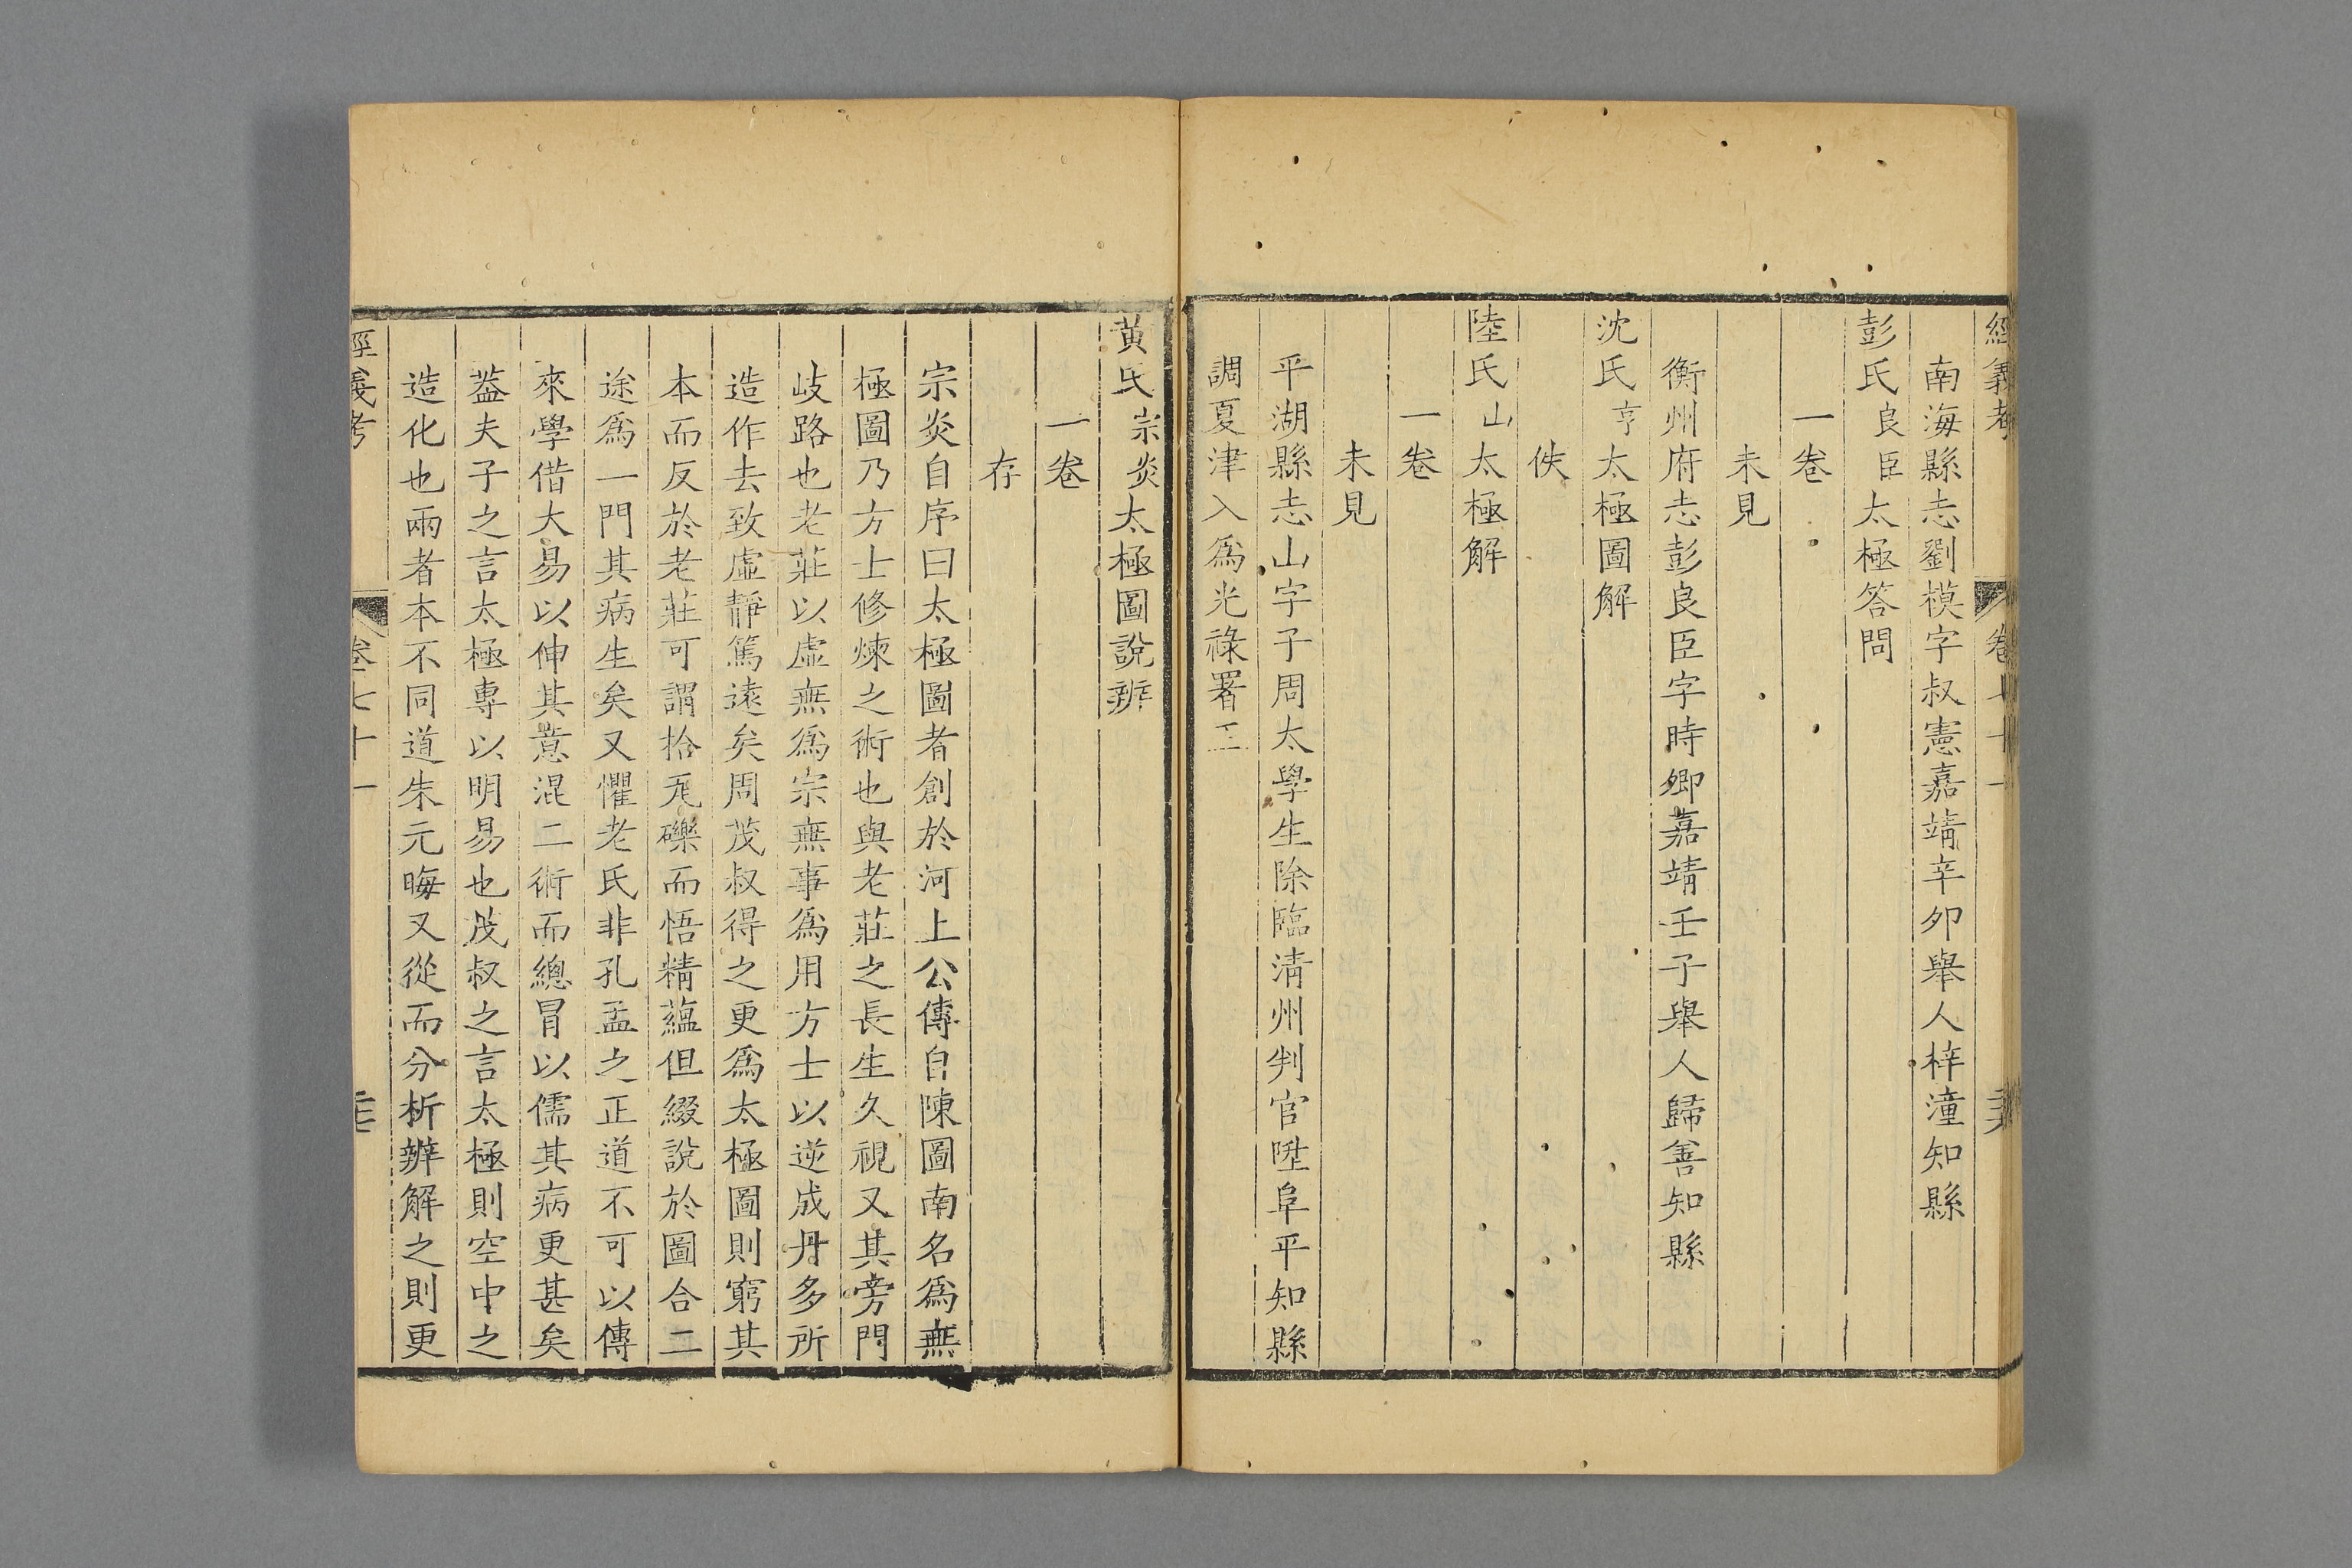 經義考 卷七十一
南海縣志劉模字叔憲嘉靖辛卯舉人梓潼知縣
彭氏良臣太極答問
一卷
未見
衡州府志彭良臣字時卿嘉靖壬子舉人歸善知縣
沈氏亨太極圖解
佚
陸氏山太極解
一卷
未見
平湖縣志山字子周太學生除臨清州判官陞阜平知縣
調夏津入爲光祿署正
黃氏宗炎太極圖說辨
一卷
存
宗炎自序曰太極圖者創於河上公傳自陳圖南名爲無
極圖乃方士修煉之術也與老莊之長生久視又其旁門
岐路也老莊以虛無爲宗無事爲用方士以逆成丹多所
造作去致虛靜篤遠矣周茂叔得之更爲太極圖則窮其
本而反於老莊可謂拾瓦礫而悟精蘊但綴說於圖合二
途爲一門其病生矣又懼老氏非孔孟之正道不可以傳
來學借大易以伸其意混二術而總冒以儒其病更甚矣
葢夫子之言太極專以明易也茂叔之言太極則空中之
造化也兩者本不同道朱元晦又從而分析辨解之則更
經義考 卷七十一